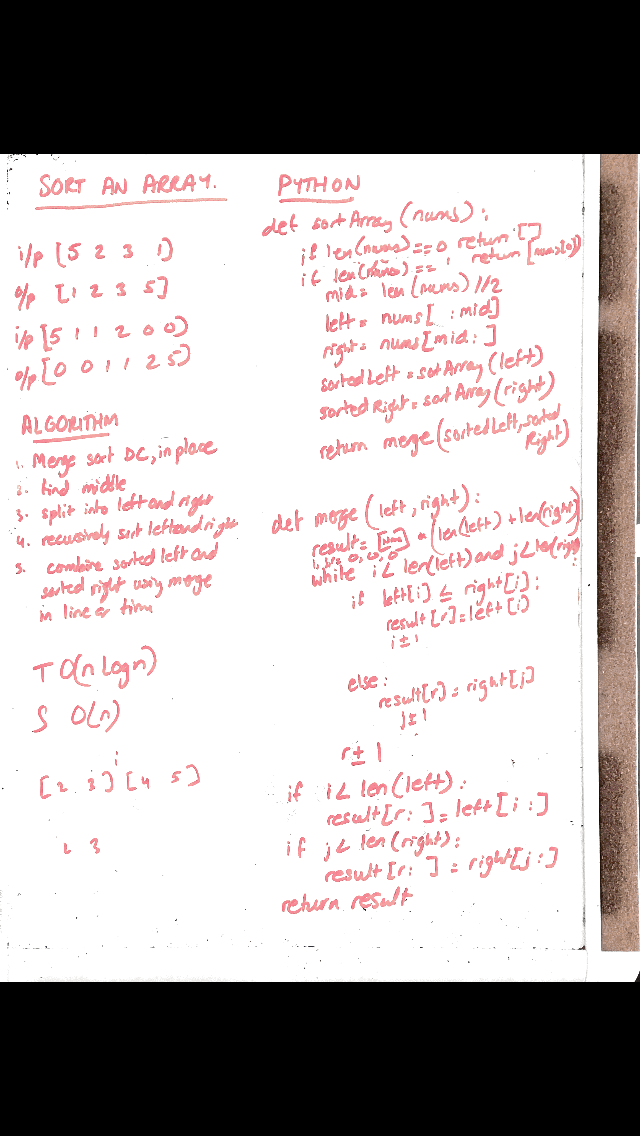 SORT AN ARRAY.
i/p [5 2 3 1]
o/p [1 2 3 5]
i/p [5 1 1 2 0 0]
o/p [0 0 1 1 2 5]
ALGORITHM
1. Merge sort DC, in place
2. find middle
3. split into left and right
4. recursively sort left and right
5. combine sorted left and
sorted right using merge
in linear time
T O(n log n)
S O(n)
i
[2 3] [4 5]
2 3
PYTHON
def sortArray (nums):
if len(nums) == 0 return []
if len(nums) == 1 return [nums[0]]
mid = len (nums) // 2
left = nums [ : mid]
right = nums [mid : ]
sorted Left = sortArray (left)
sorted Right = sortArray (right)
return merge (sorted Left, sorted
Right)
def merge (left, right):
result = [None] * (len(left) + len(right))
i, j, r = 0, 0, 0
while i < len(left) and j < len(right):
if left[i] ≤ right[i]:
result [r] = left [i]
i ± 1
else:
result[r] = right [j]
j ± 1
r ± 1
if i < len (left):
result [r: ] = left [i :]
if j < len (right):
result [r: ] = right [j :]
return result